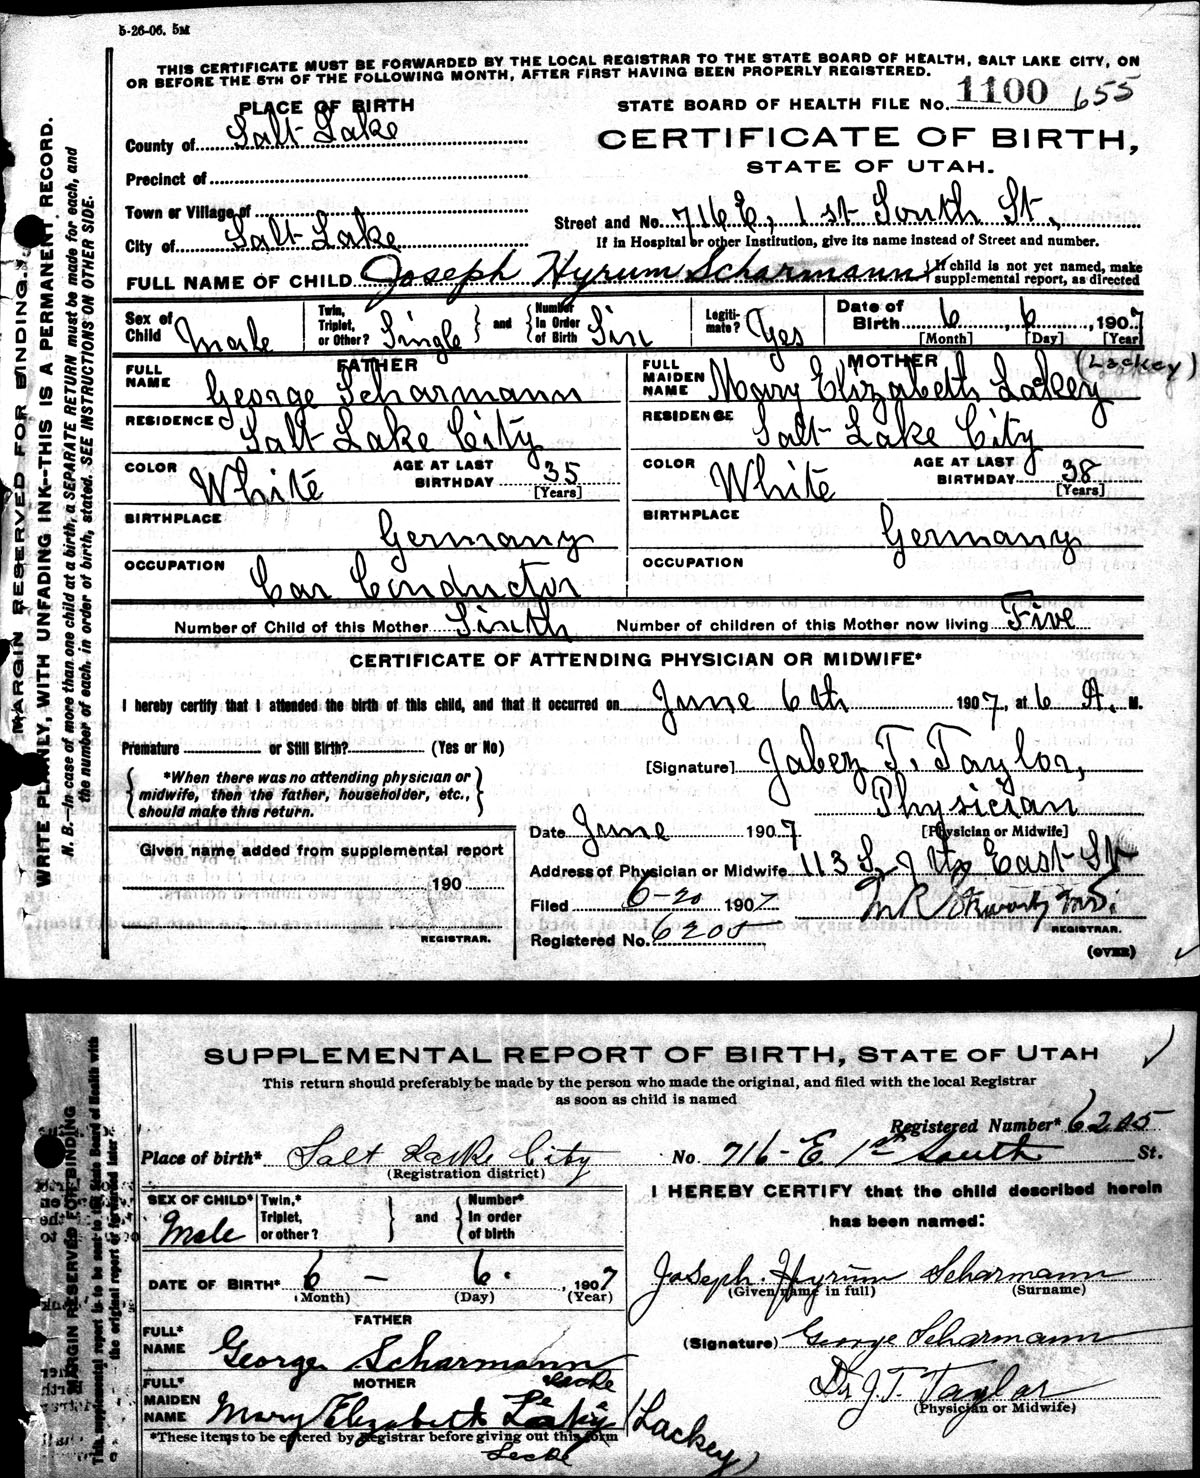 5-26-06. 5M
THIS CERTIFICATE MUST BE FORWARDED BY THE LOCAL REGISTRAR TO THE STATE BOARD OF HEALTH, SALT LAKE CITY, ON
OR BEFORE THE 5TH OF THE FOLLOWING MONTH, AFTER FIRST HAVING BEEN PROPERLY REGISTERED.
PLACE OF BIRTH
STATE BOARD OF HEALTH FILE No. 1100 655
County of Salt Lake
CERTIFICATE OF BIRTH,
STATE OF UTAH.
Precinct of
Town or Village of
Street and No. 716 E, 1st South St,
City of Salt Lake
If in Hospital or other Institution, give its name instead of Street and number.
FULL NAME OF CHILD Joseph Hyrum Scharmann { If child is not yet named, make supplemental report, as directed
Sex of Child Male Twin, Triplet, or Other? Single } and { Number In Order of Birth Six Legiti-mate? Yes Date of Birth 6, 6, 1907
[Month] [Day] [Year]
FATHER
FULL NAME George Scharmann
RESIDENCE Salt Lake City
COLOR White AGE AT LAST BIRTHDAY 35
[Years]
BIRTHPLACE Germany
OCCUPATION Car Conductor
MOTHER
(Lackey)
FULL MAIDEN NAME Mary Elizabeth Lackey
RESIDENCE Salt Lake City
COLOR White AGE AT LAST BIRTHDAY 38
[Years]
BIRTHPLACE Germany
OCCUPATION
Number of Child of this Mother Sixth Number of children of this Mother now living Five
CERTIFICATE OF ATTENDING PHYSICIAN OR MIDWIFE*
I hereby certify that I attended the birth of this child, and that it occurred on June 6th 1907, at 6 A. M.
Premature or Still Birth? (Yes or No)
[Signature] Jabez T. Taylor,
{ *When there was no attending physician or
midwife, then the father, householder, etc.,
should make this return. }
Physician
[Physician or Midwife]
Date June 1907
Given name added from supplemental report
190
REGISTRAR.
Address of Physician or Midwife 113 S. 7th East St
Filed 6-20 1907
REGISTRAR.
Registered No. 6205
(OVER)
MARGIN RESERVED FOR BINDING.
WRITE PLAINLY, WITH UNFADING INK—THIS IS A PERMANENT RECORD.
N. B.—In case of more than one child at a birth, a SEPARATE RETURN must be made for each, and
the number of each, in order of birth, stated. SEE INSTRUCTIONS ON OTHER SIDE.
SUPPLEMENTAL REPORT OF BIRTH, STATE OF UTAH
This return should preferably be made by the person who made the original, and filed with the local Registrar
as soon as child is named
Registered Number* 6205
Place of birth* Salt Lake City No. 716-E. 1st South St.
(Registration district)
SEX OF CHILD* Male Twin,* Triplet, or other? } and { Number* In order of birth
DATE OF BIRTH* 6 - 6. , 1907
(Month) (Day) (Year)
FATHER
FULL* NAME George Scharmann
MOTHER
Lecke
FULL* MAIDEN NAME Mary Elizabeth (Lackey)
*These items to be entered by Registrar before giving out this form
Lecke
I HEREBY CERTIFY that the child described herein
has been named:
Joseph Hyrum Scharmann
(Given name in full) (Surname)
(Signature) George Scharmann
Dr J. T. Taylor
(Physician or Midwife)
MARGIN RESERVED FOR BINDING
This supplemental report is to be sent to the State Board of Health with
the original report of